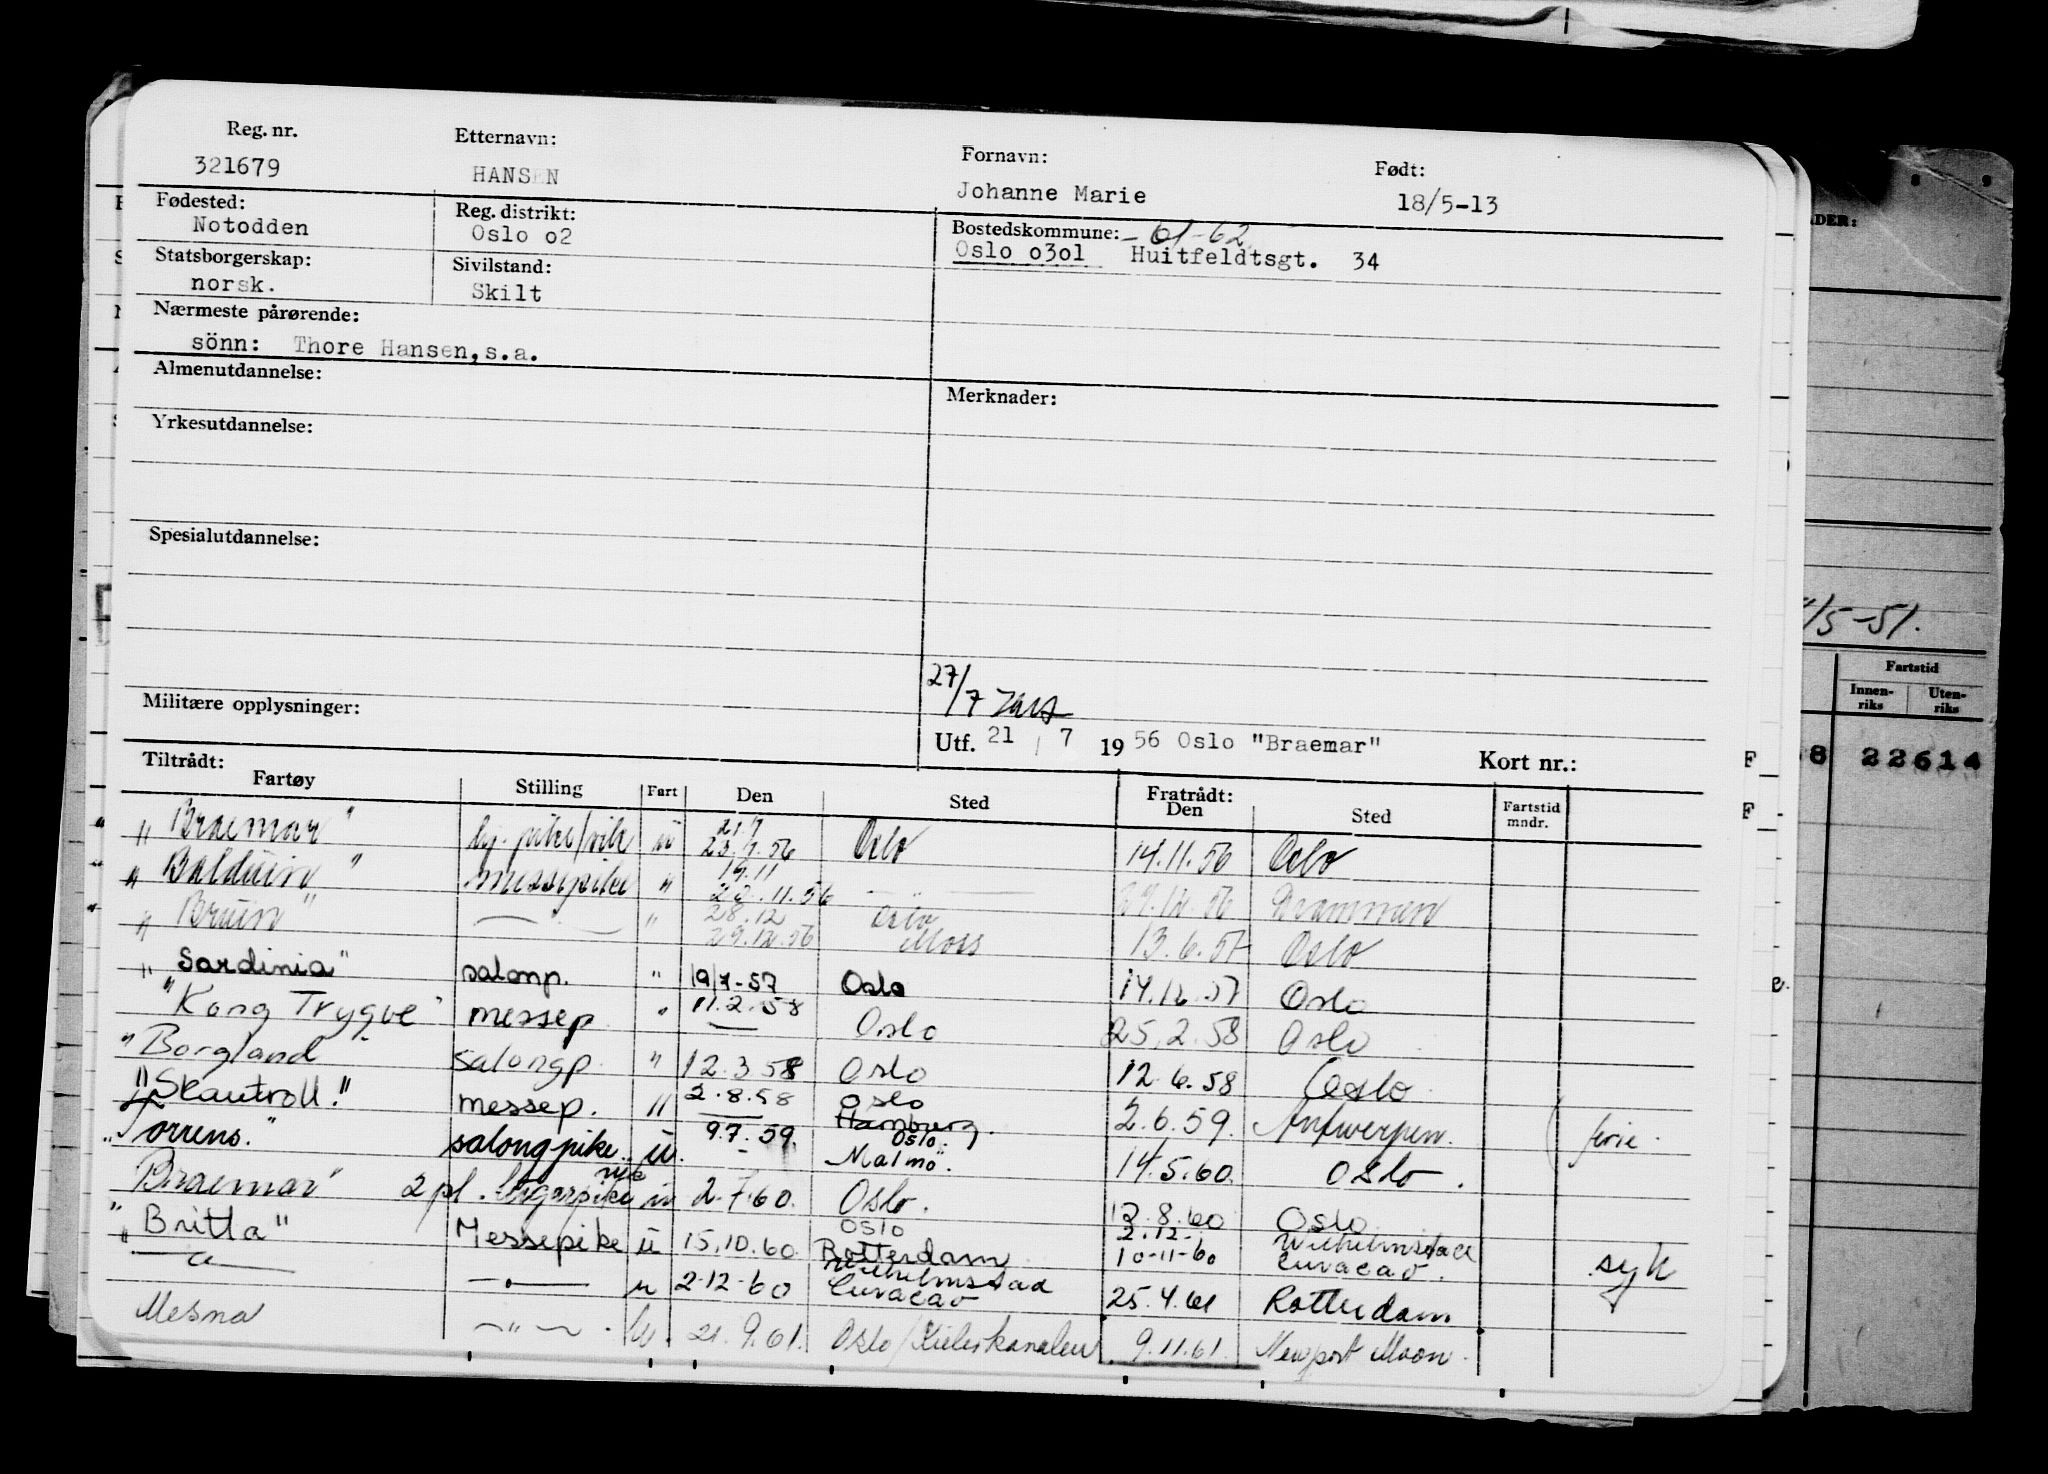 Reg. nr. Etternavn: Fornavn: Født:
321679 HANSEN Johanne Marie 18/5-13
Fødested: Reg. distrikt: Bostedskommune: - 61-62
Notodden Oslo o2 Oslo o3o1 Huitfeldtsgt. 34
Statsborgerskap: Sivilstand:
norsk. Skilt
Nærmeste pårørende:
sönn: Thore Hansen,s.a.
Almenutdannelse: Merknader:
Yrkesutdannelse:
Spesialutdannelse:
27/7
Militære opplysninger: Utf. 21 / 7 1956 Oslo "Braemar" Kort nr.:
Tiltrådt: Fratrådt:
Fartøy Stilling Fart Den Sted Den Sted Fartstid mndr.
"Braemar" u 21.7 23.7.56 Oslo 14.11.56 Oslo
"Balduin" messepike " 19.11 20.11.56 29.12.56 Drammen
"Bruin" — " 28.12 29.12.56 Oslo Moss 13.6.57 Oslo
"Sardinia" salonp. " 19/7-57 Oslo 14.12.57 Oslo
"Kong Trygve" messep " 11.2.58 Oslo 25.2.58 Oslo
"Borgland salongp. " 12.3.58 Oslo 12.6.58 Oslo
"Skautroll." messep. " 2.8.58 Oslo Hamburg. 2.6.59. Antwerpen. ferie.
"Torrens." salongpike u. 9.7.59. Oslo. Malmö. 14.5.60. Oslo.
Braemar" 2 pl. in 2.7.60. Oslo. 12.8.60 Oslo.
"Britta" Messepike u 15.10.60 Oslo Rotterdam 2.12- 10-11-60 Wilhelmstad Curacao. syk
" — — u 2-12-60 Wilhelmstad Curacao 25.4.61 Rotterdam
Mesna — " — u. 21.9.61. Oslo/Kielerkanalen 9.11.61. Newport Moon.
DER:
/5-51.
Fartstid
Innen-riks Uten-riks
8 22614